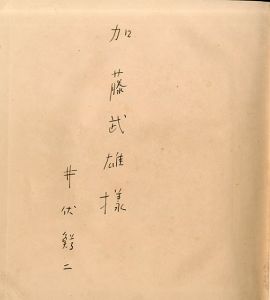 加藤武雄様
井伏鱒二